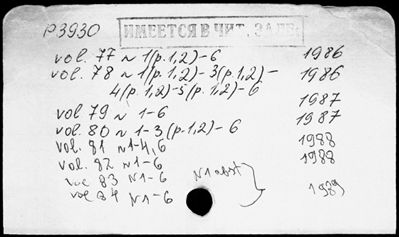 P3930
ИМЕЕТСЯ В ЧИТ. ЗАЛЕ
vol. 77 N 1(p.1,2)-6 1986
vol. 78 N 1(p.1,2)-3(p.1,2)- 1986
4(p.1,2)-5(p.1,2)-6
vol 79 N 1-6 1987
vol. 80 N 1-3(p.1,2)-6 1987
vol. 81 N 1-4,6 1988
vol. 82 N 1-6 1988
vol 83 N 1-6 N1 abst
vol 84 N 1-6 1989